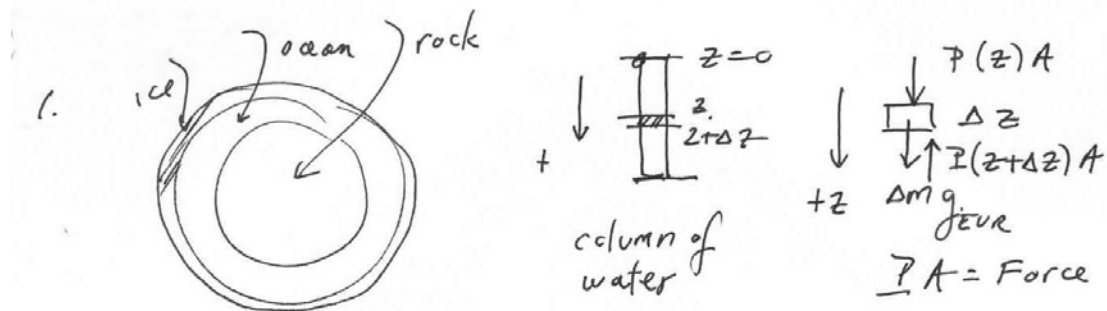 1.
ice
ocean
rock
+
z=0
z
z+Δz
column of
water
+z
P(z)A
Δz
P(z+Δz)A
Δm g EUR
P A = Force